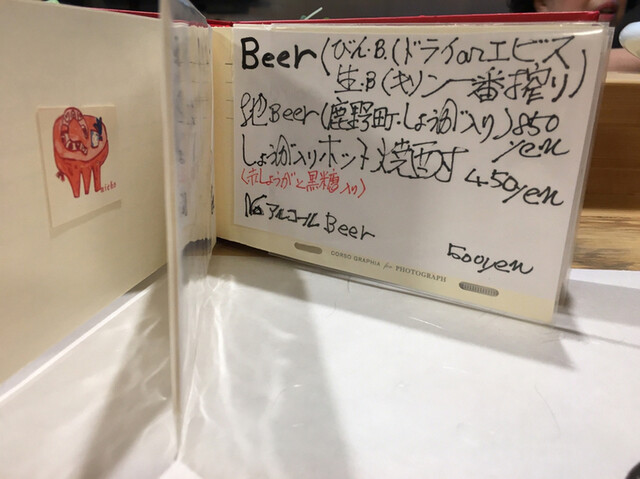 Beer (びん.B.(ドライorエビス
生.B(キリン一番搾り)
地Beer(鹿野町.しょうが入り)850
yen
しょうが入りホット焼酎 450yen
(赤しょうがと黒糖入り)
No アルコール Beer
500yen
CORSO GRAPHIA for PHOTOGRAPH